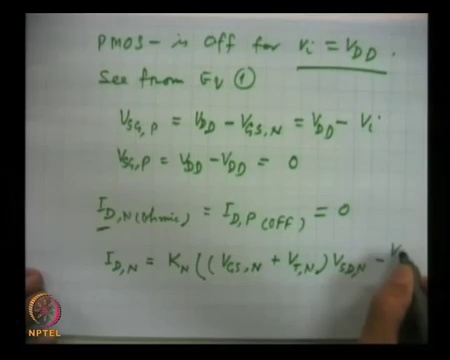 PMOS - is off for Vi = VDD.
See from EV ①
VSG,P = VDD - VGS,N = VDD - Vi
VSG,P = VDD - VDD = 0
ID,N (Ohmic) = ID,P (OFF) = 0
ID,N = KN ((VGS,N + VT,N) VSD,N - V
NPTEL